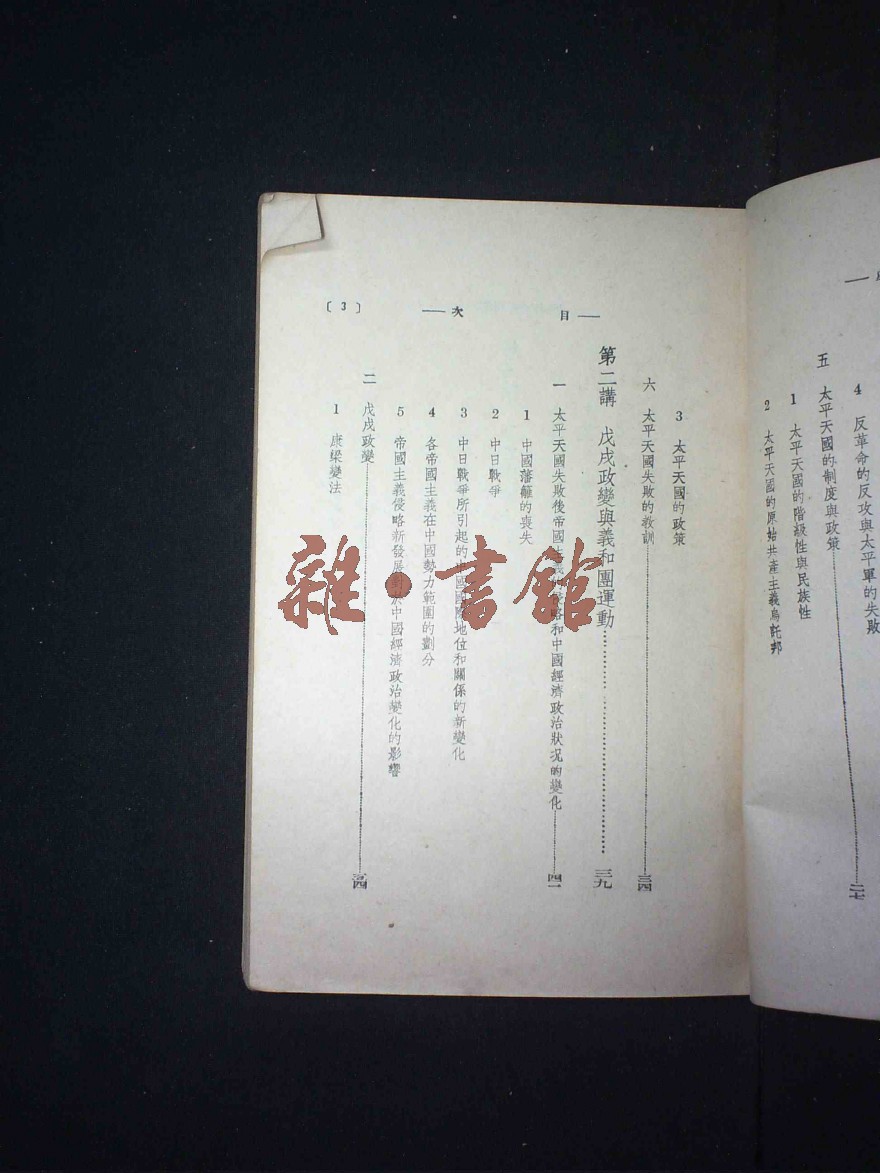 五 太平天國的制度與政策 二七
4 反革命的反攻與太平軍的失敗
1 太平天國的階級性與民族性
2 太平天國的原始共產主義烏託邦
目 次 〔3〕
3 太平天國的政策
六 太平天國失敗的教訓 三四
第二講 戊戌政變與義和團運動 三九
一 太平天國失敗後帝國主義 略和中國經濟政治狀况的變化 四一
1 中國藩籬的喪失
2 中日戰爭
3 中日戰爭所引起的中國國際地位和關係的新變化
4 各帝國主義在中國勢力範圍的劃分
5 帝國主義侵略新發展對於中國經濟政治變化的影響
二 戊戌政變
1 康梁變法
雜·書館